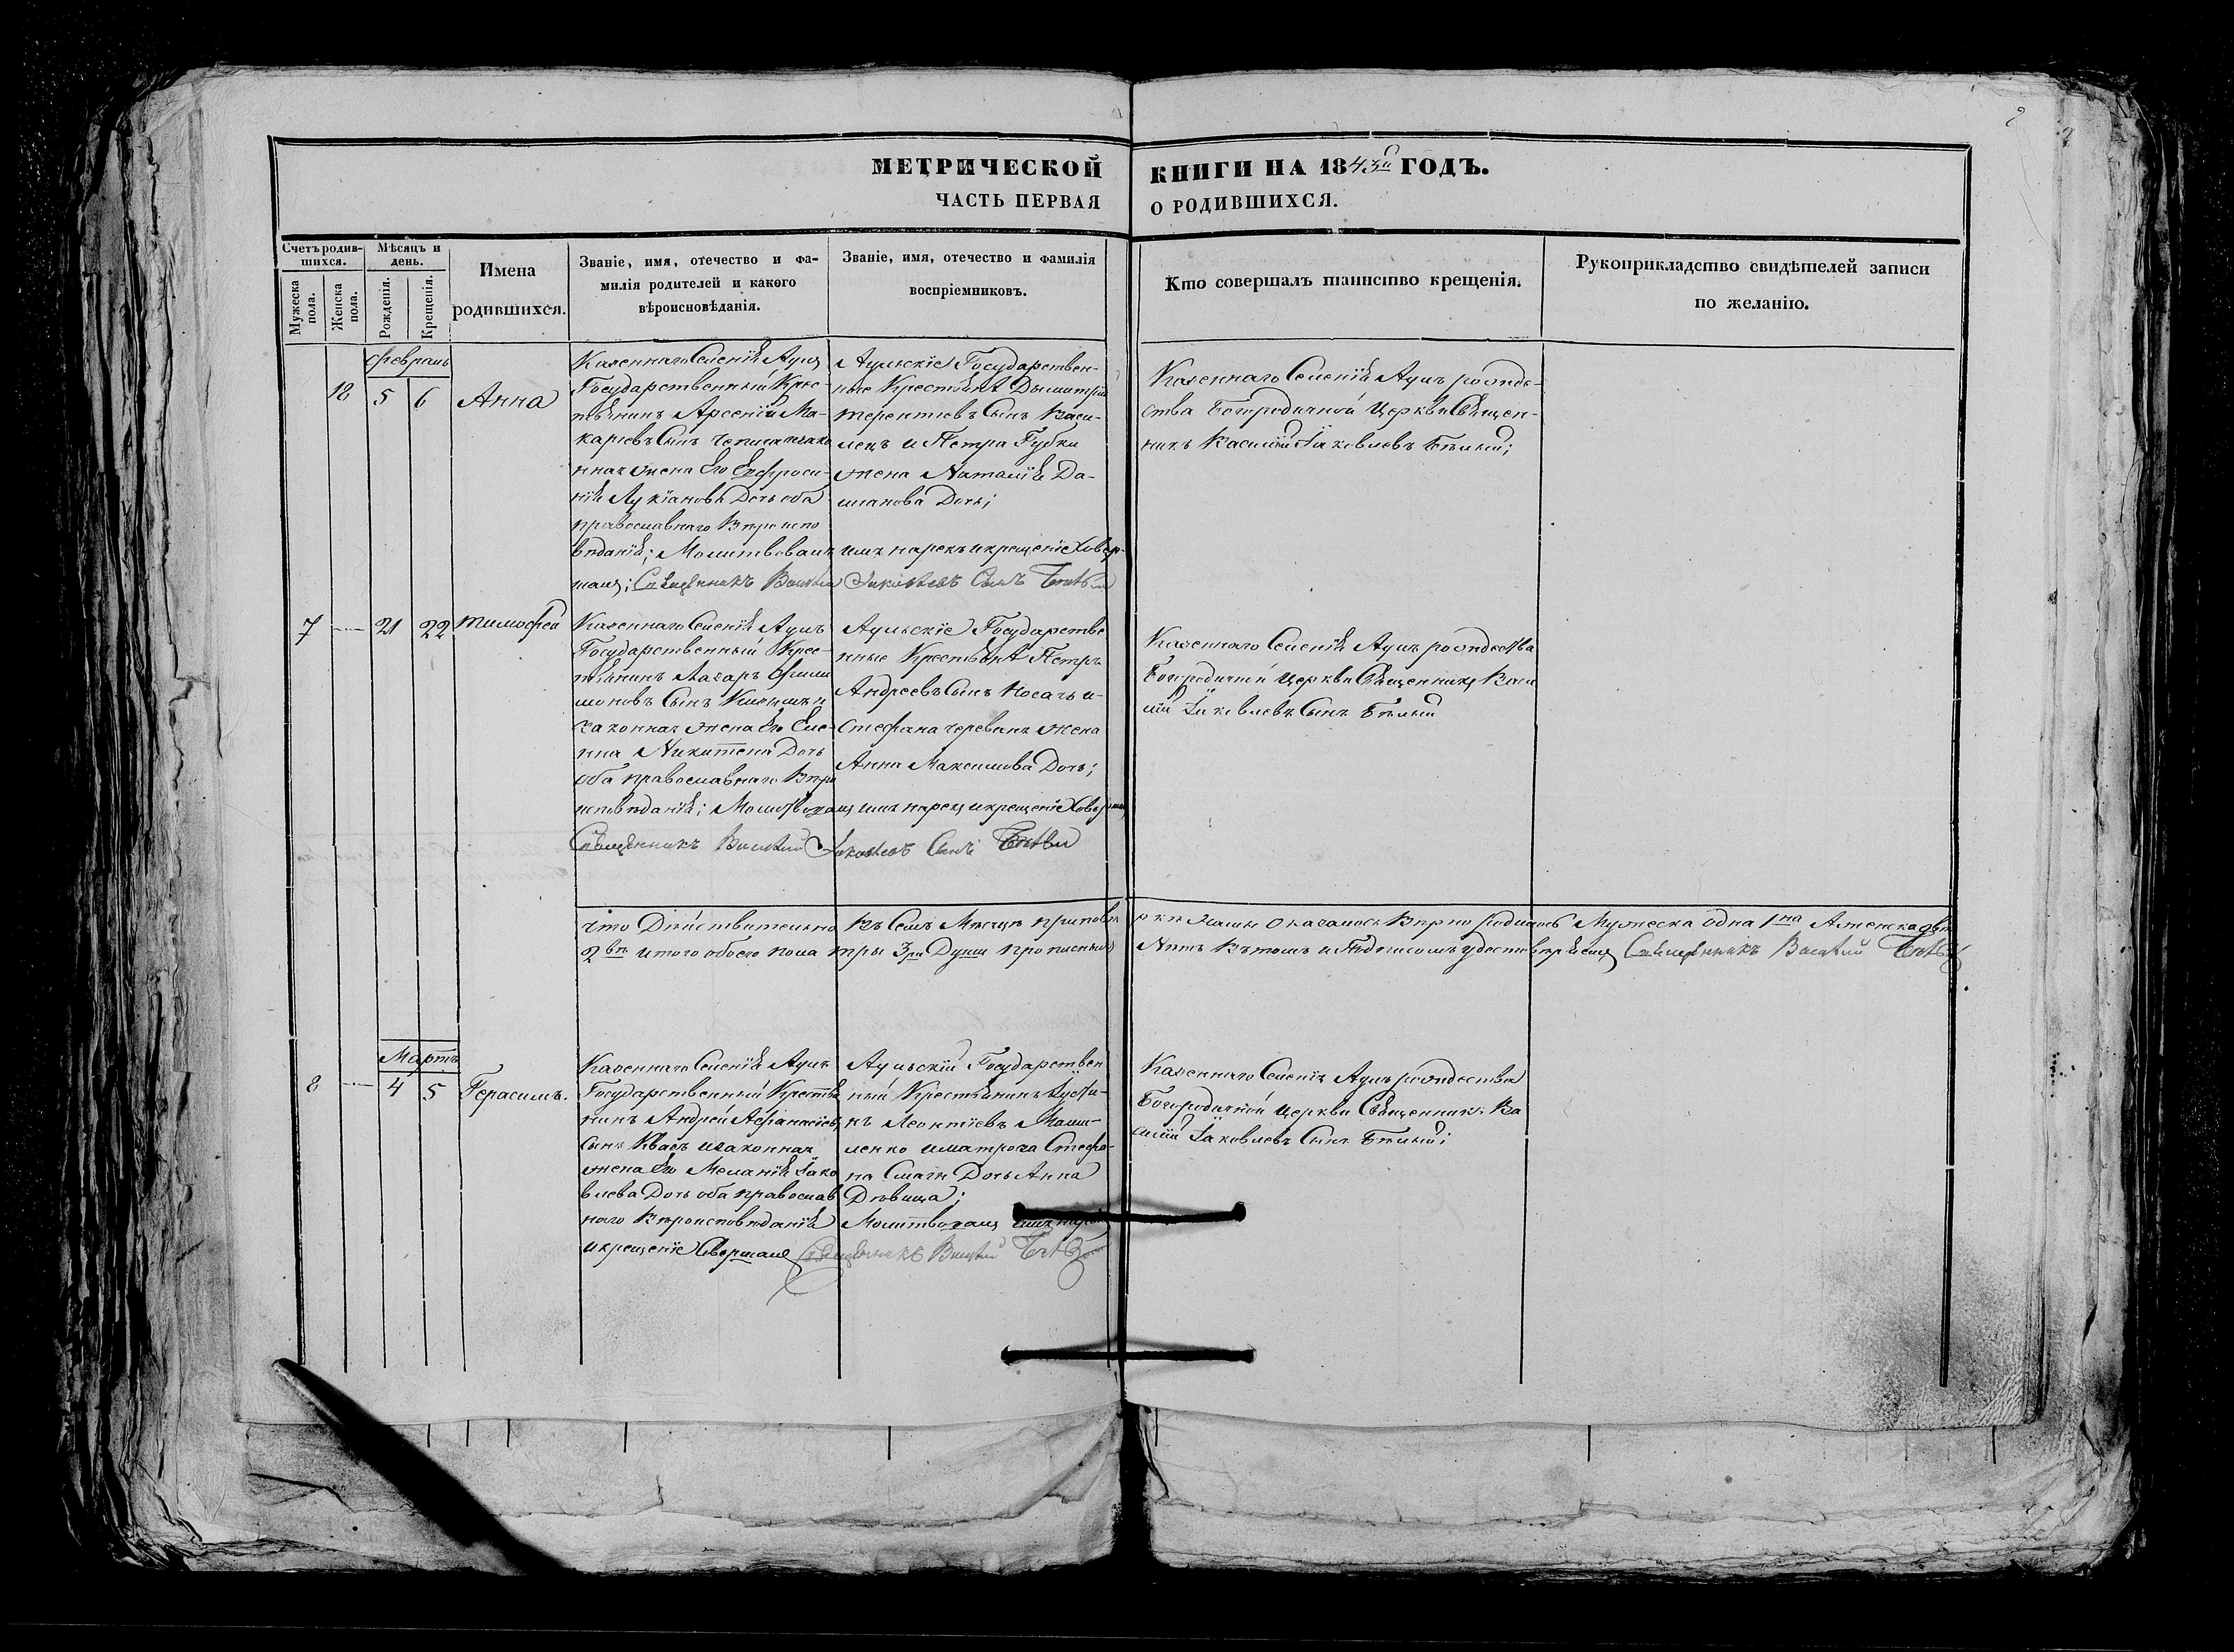 МЕТРИЧЕСКОЙ КНИГИ НА 1843й ГОДЪ.
ЧАСТЬ ПЕРВАЯ О РОДИВШИХСЯ.
Счетъ родив-
шихся.
Мужеска
пола.
Женска
пола.
Мѣсяцъ и
день.
Рожденія.
Крещенія.
Имена
родившихся.
Званіе, имя, отечество и фа-
милія родителей и какого
вѣроисновѣданія.
Званіе, имя, отечество и фамилія
воспріемниковъ.
Кто совершалъ таинство крещенія.
Рукоприкладство свидѣтелей записи
по желанію.
февраль
5 6 Анна
Казеннаго Селенія Аулъ
Государственный Крес-
тьянинъ Арсеній Ма-
каріевъ Сынъ
жена Его Евфроси-
нія Лукіанова Дочь оба
православнаго Вѣроиспо
вѣданія; Молитвовалъ имя нарекъ и крещеніе Совер-
шалъ; Священникъ Василій Іаковлевъ Сынъ Бѣлый
Аульскіе Государствен-
ные Крестьяне Дымитрій
Терентіевъ Сынъ Васи-
лецъ и Петра Губки
жена Наталія Да-
міанова Дочь;
Казеннаго Селенія Аулъ рождe-
ства Богородичной Церкви Священ-
никъ Василій Іаковлевъ Бѣлый;
7 21 22 Тимофей
Казеннаго Селенія Аулъ
Государственный Крес-
тьянинъ Лазарь Фили
моновъ Сынъ
законная жена Его Еле-
нна Никитена Дочь
оба православнаго Вѣро
исповѣданія; Молитвовалъ имя нарекъ и крещеніе Совершалъ
Священникъ Василій Іаковлевъ Сынъ Бѣлый
Аульскіе Государстве
нные Крестьяне Петръ
Андреевъ Сынъ Носачь и
Стефана черевань жена
Анна Максимова Дочь;
Казеннаго Селенія Аулъ рождества
Богородичной Церкви Священникъ Васи
лій Іаковлевъ Сынъ Бѣлый
что Дѣйствительно Въ Семъ Мѣсяцѣ при повѣркѣ Нашы оказалось Вѣрно родилось Мужеска одна 1на А женска двѣ
2вѣ итого обоего пола тры 3ри Души прописныхъ Нѣтъ Въ томъ и Подписомъ удостовѣряемъ Священникъ Василій Бѣлый
Мартъ
8 4 5 Герасимъ.
Казеннаго Селенія Аулъ
Государственный Крестья
нинъ Андрей Афанасіевъ
Сынъ Квасъ и законная
жена Его Меланія Іако
влева Дочь оба православ
наго Вѣроисповѣданія
Аульскій Государствен
ный Крестьянинъ Іусти-
нъ Леонтіевъ
Стефа-
на Дочь Анна
Дѣвица;
Молитвовалъ имя нарекъ
и крещеніе Совершалъ Священникъ Василій Бѣлый
Казеннаго Селенія Аулъ рождества
Богородичной Церкви Священникъ Ва
силій Іаковлевъ Сынъ Бѣлый;